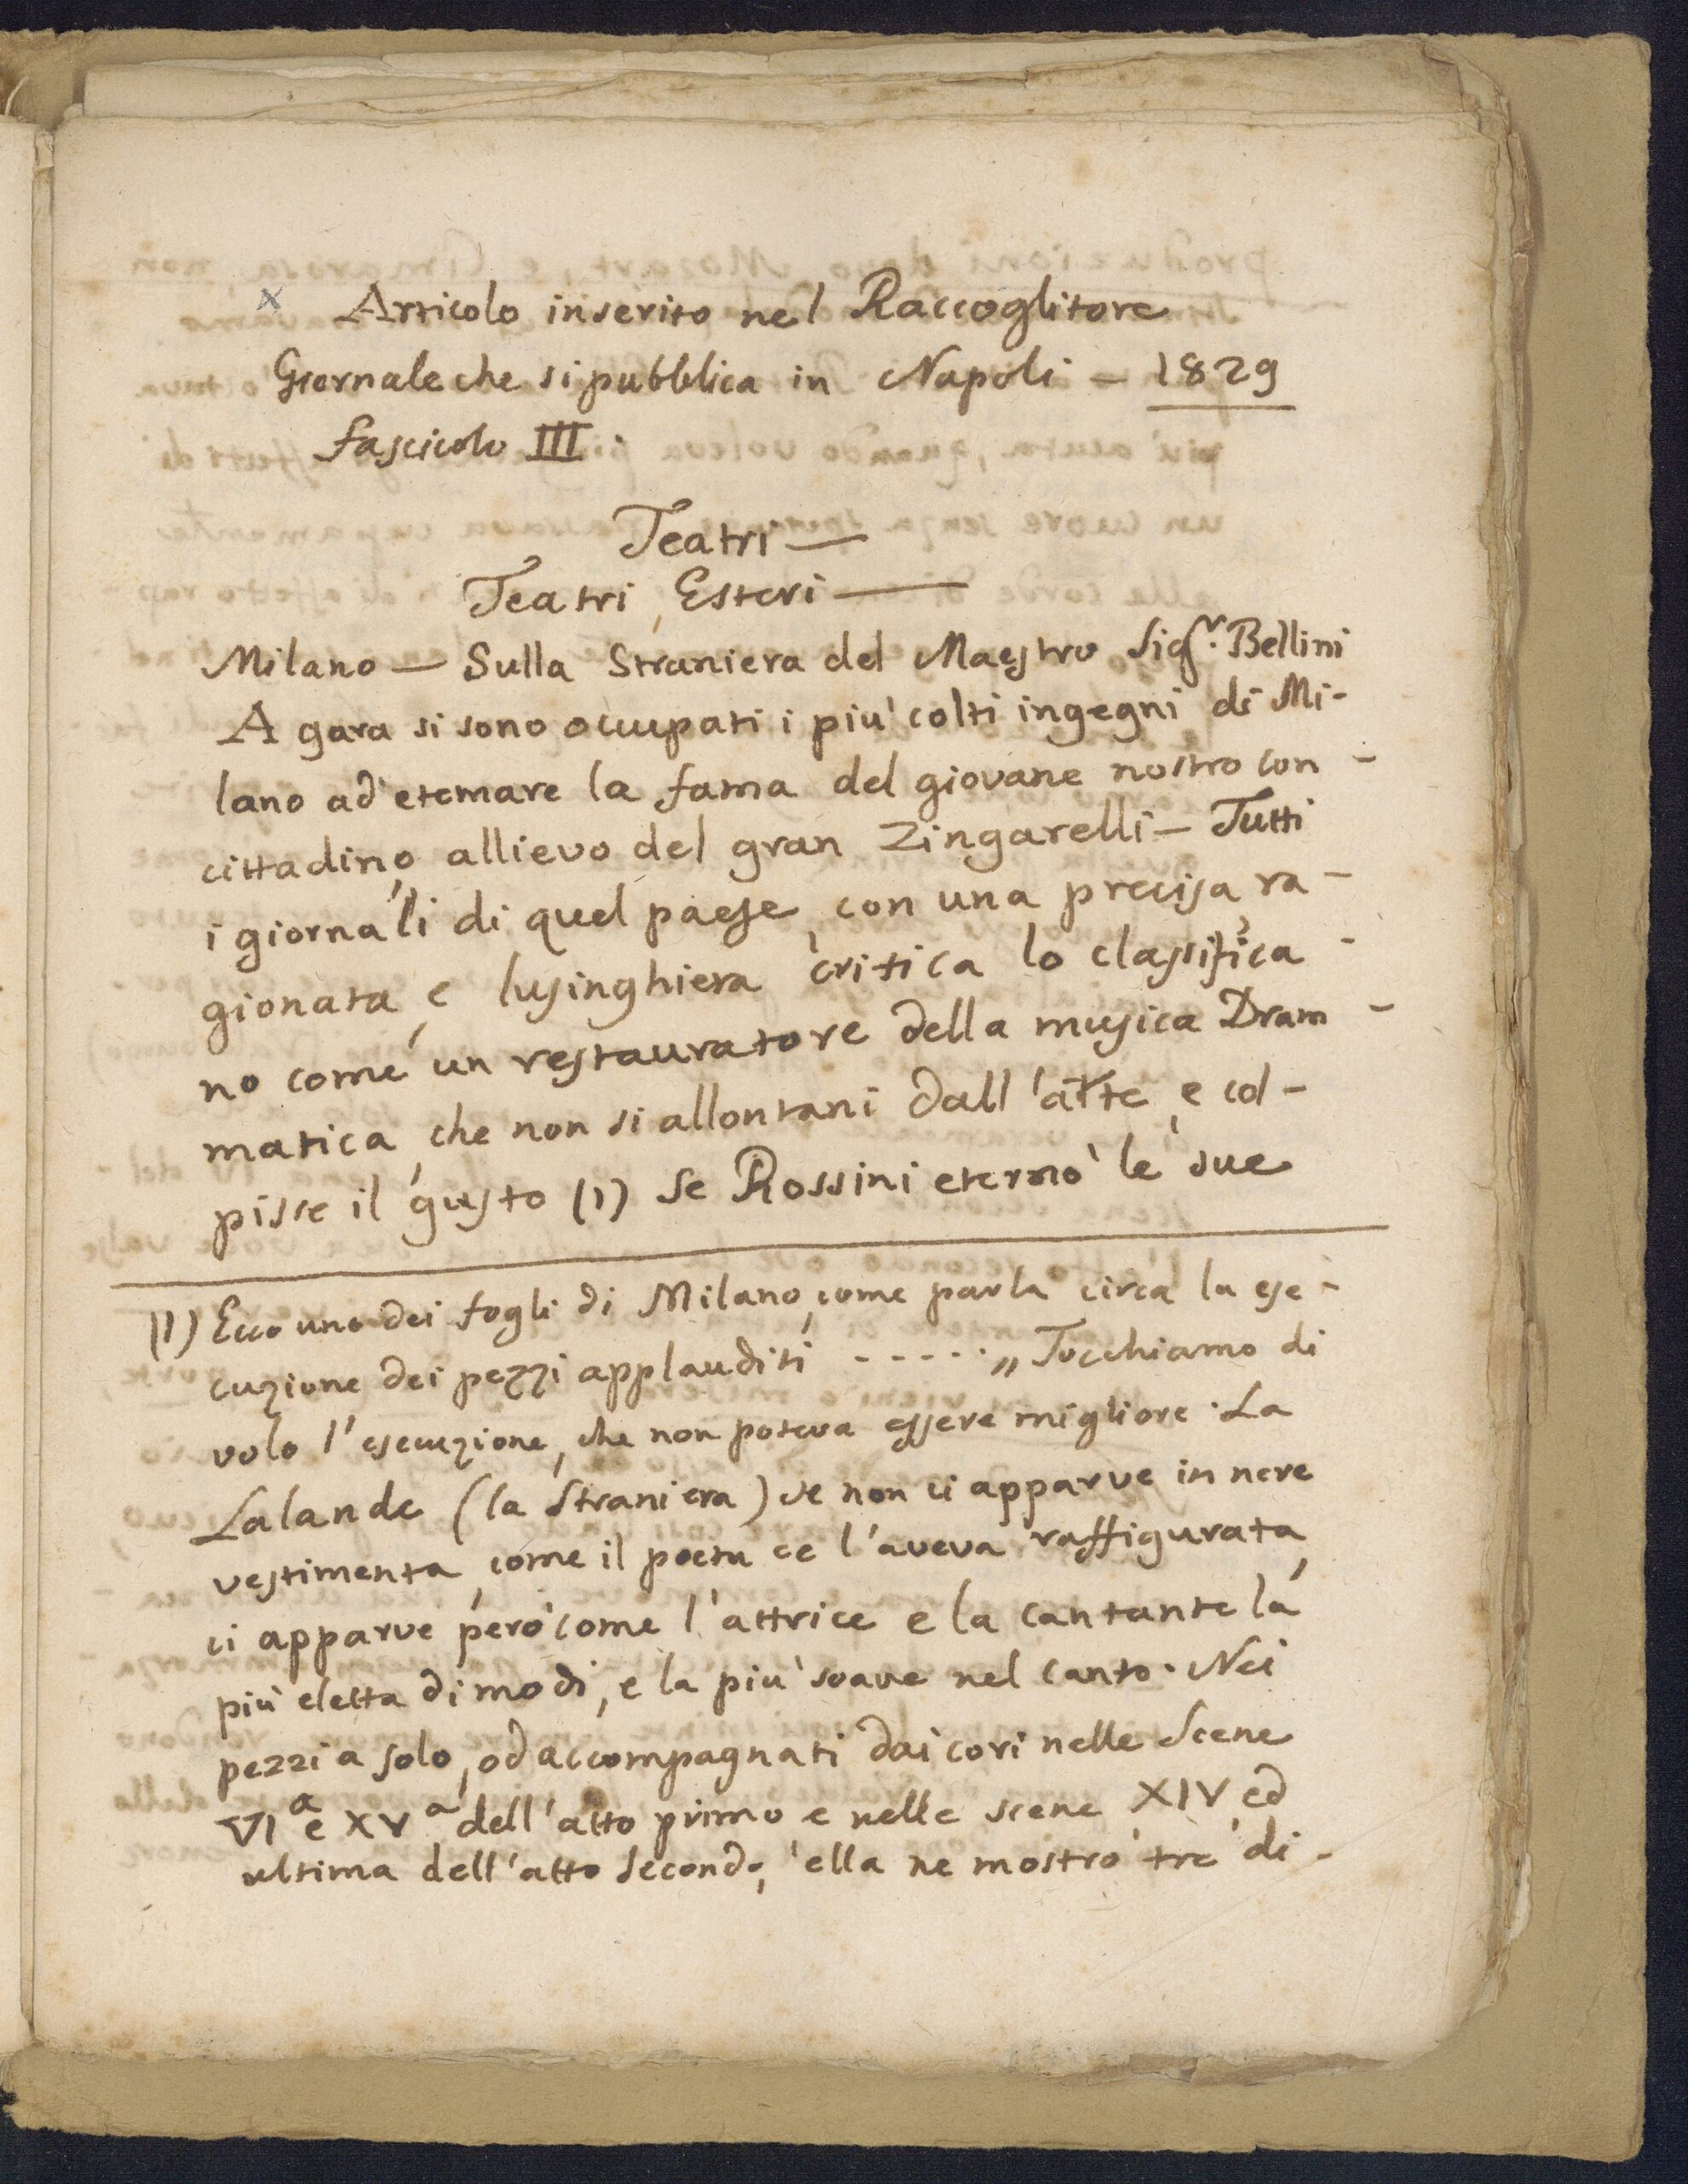 x Articolo inserito nel Raccoglitore
Giornale che si pubblica in Napoli – 1829
fascicolo III.
Teatri —
Teatri Esteri —
Milano — Sulla Straniera del Maestro Sigr. Bellini
A gara si sono occupati i più colti ingegni di Mi-
lano ad eternare la fama del giovane nostro con-
cittadino, allievo del gran Zingarelli – Tutti
i giornali di quel paese, con una precisa ra-
gionata, e lusinghiera critica lo classifica-
no come un restauratore della musica Dram-
matica, che non si allontani dall'arte, e col-
pisse il gusto (1) Se Rossini eternò le sue
(1) Ecco uno dei fogli di Milano, come parla circa la ese-
cuzione dei pezzi applauditi ------ „ Tocchiamo di
volo l'esecuzione, che non poteva essere migliore. La
Lalande (la Straniera) se non ci apparve in nere
vestimenta, come il poeta ce l'aveva raffigurata,
ci apparve però come l'attrice e la cantante la
più eletta di modi, e la più soave nel canto. Nei
pezzi a solo, od accompagnati dai cori nelle Scene
VIa e XVa dell'atto primo e nelle scene XIV ed
ultima dell'atto secondo, ella ne mostrò tre di-